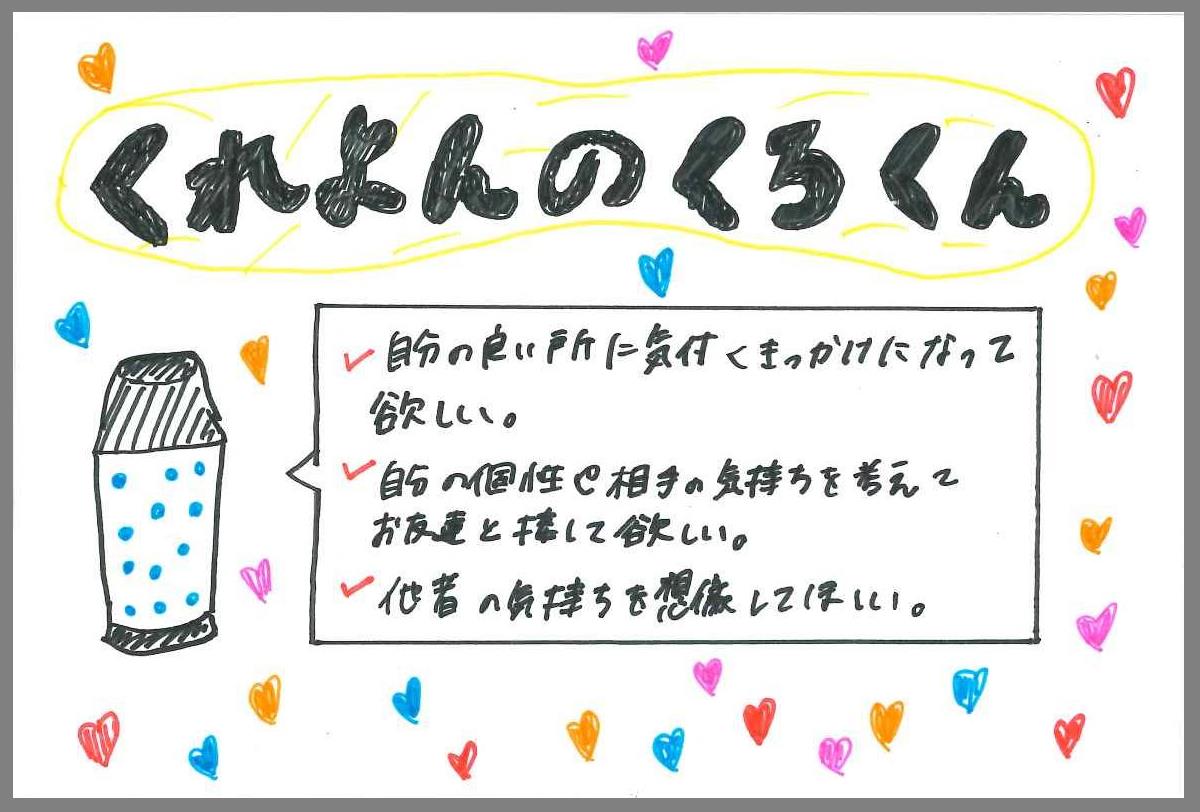 くれよんのくろくん
✓自分の良い所に気付くきっかけになって
欲しい。
✓自分の個性や相手の気持ちを考えて
お友達と接して欲しい。
✓他者の気持ちを想像してほしい。